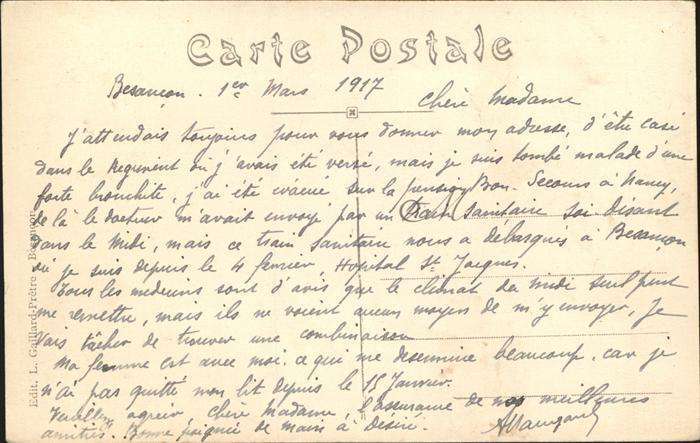 Carte Postale
Besançon. 1er Mars 1917
Chère Madame
J'attendais toujours pour vous donner mon adresse, d'être casé
dans le Regiment où j'avais été versé, mais je suis tombé malade d'une
forte bronchite, j'ai été évacué sur la pension Bon-Secours à Nancy,
de là le docteur m'avait envoyé par un train sanitaire soi-disant
dans le Midi, mais ce train sanitaire nous a débarqués à Besançon
où je suis depuis le 4 février, Hôpital St Jacques.
Tous les medecins sont d'avis que le climat du midi seul peut
me remettre, mais ils ne voient aucun moyen de m'y envoyer, Je
vais tâcher de trouver une combinaison
Ma femme est avec moi, ce qui me desennuie beaucoup, car je
n'ai pas quitté mon lit depuis le 15 Janvier.
Veuillez agréer, chère Madame, l'assurance de nos meilleures
amitiés. Bonne poignée de mains à Désiré.
Edit. L. Gaillard-Prêtre, Besançon